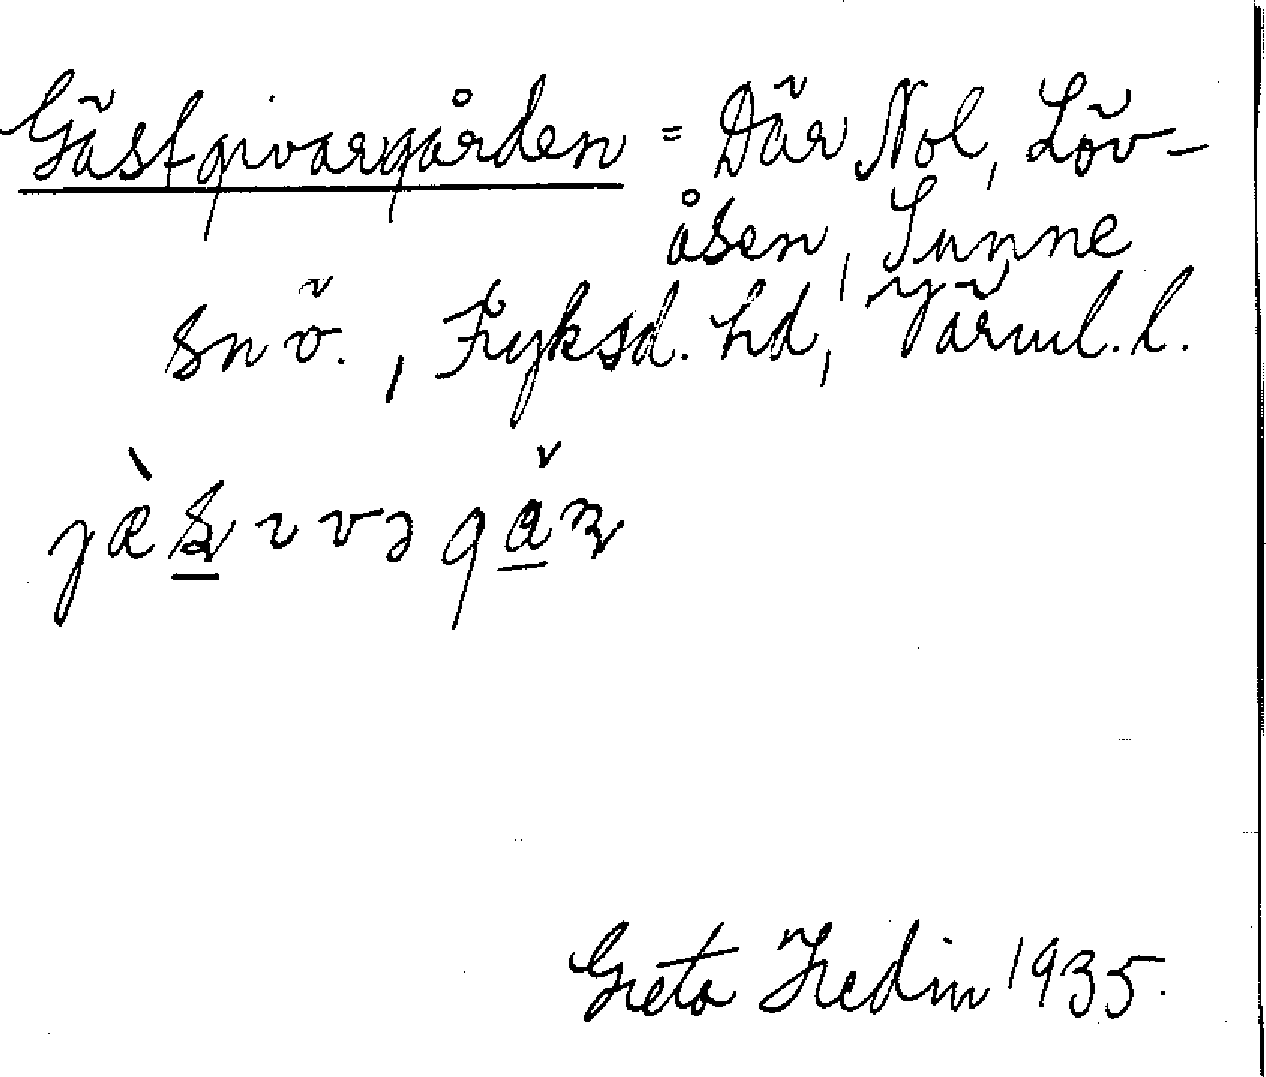 Gästgivargården = Där Nol, Löv-
åsen, Sunne
snö., Fryksd. hd, Värml. l.
Greta Hedin 1935.